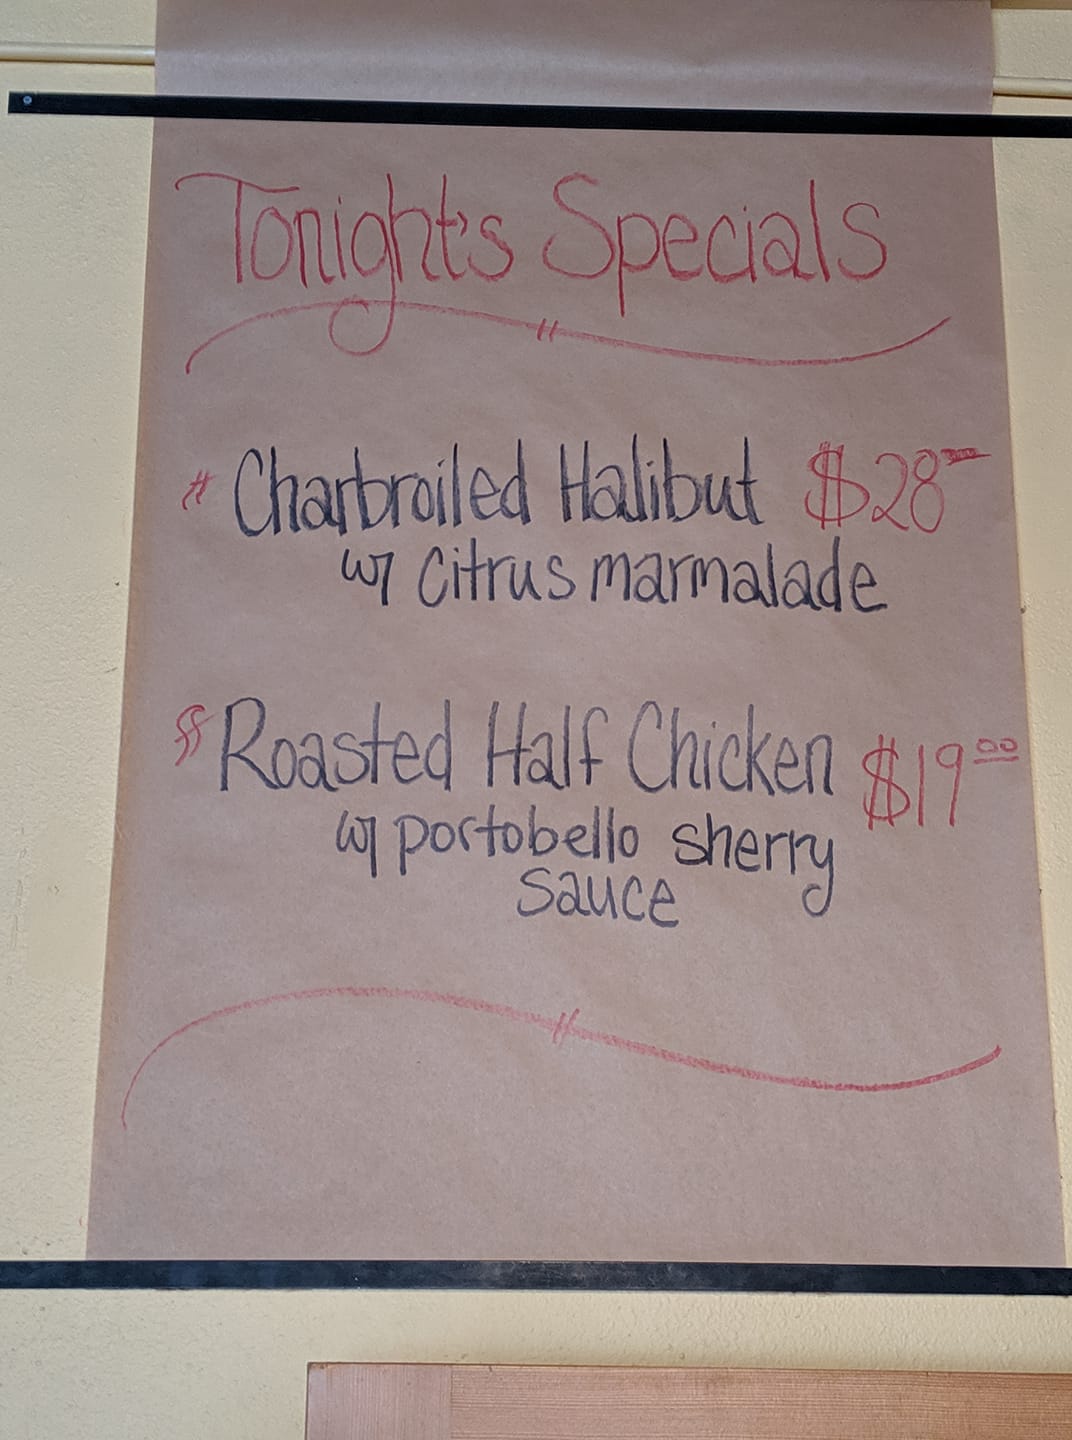 Tonight's Specials
Charbroiled Halibut $28-
w/ citrus marmalade
Roasted Half Chicken $19.00
w/ portobello sherry
sauce